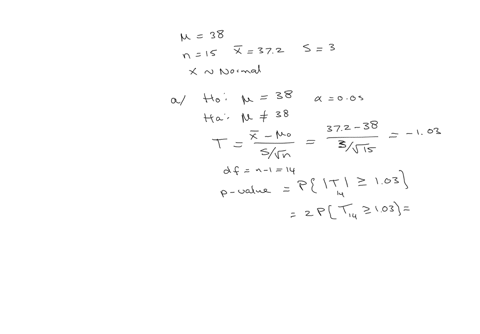 μ = 38
n = 15 x̄ = 37.2 S = 3
X ~ Normal
a/ Ho: μ = 38 α = 0.05
Ha: μ ≠ 38
T = (x̄ - μo)/(S/√n) = (37.2 - 38)/(3/√15) = -1.03
df = n-1 = 14
p-value = P{ |T14| ≥ 1.03 }
= 2 P{ T14 ≥ 1.03 } =